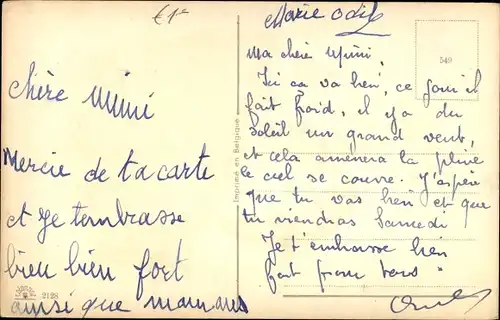 €1-
Marie Odile
chère Mimi
Mercie de ta carte
et je tembrasse
bien bien fort
ainsi que maman
2128
Imprimé en Belgique
549
Ma chère Mimi,
Ici ça va bien, ce jour il
fait froid, il y a du
soleil un grand vent,
et cela amènera la pluie
le ciel se couvre. J'aspère
que tu vas bien et que
tu viendras Samedi
Je t'embrasse bien
fort pour tous